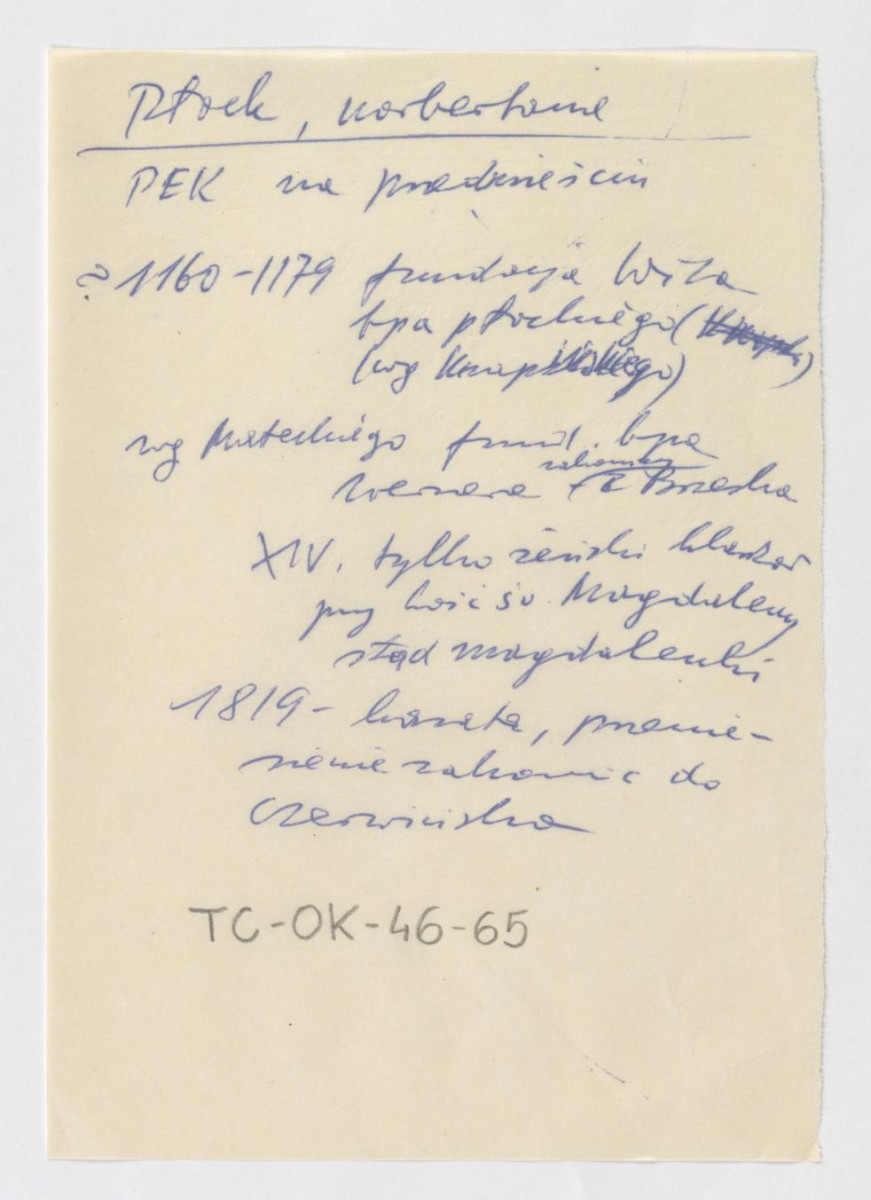 Płock, norbertanie
PEK na przedmieściu
~ 1160-1179 fundacja Wita
bpa płockiego (
(wg Knapińskiego)
wg Małeckiego fund. bpa
Wernera z Brzeska
XIV. tylko żeński klasztor
przy kość św. Magdaleny
stąd magdalenki
1819 - kasata, przenie-
sienie zakonnic do
Czerwińska
TC-OK-46-65